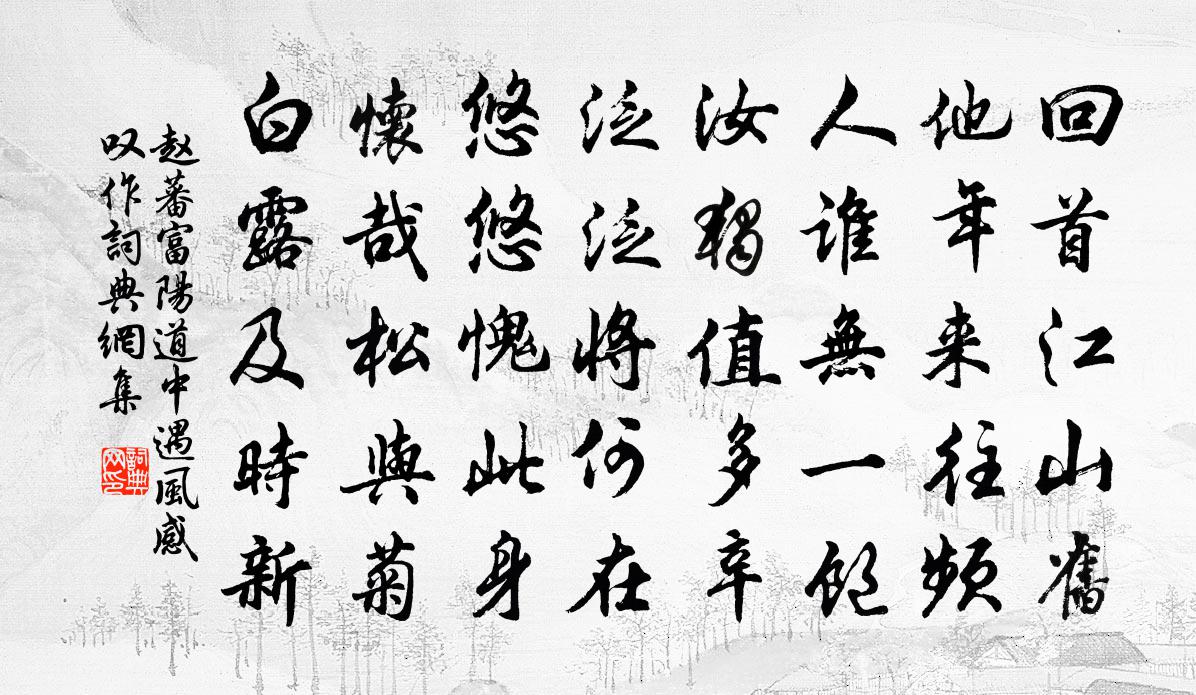 回首江山舊
他年来往頻
人誰無一飽
汝獨值多辛
泛泛將何在
悠悠愧此身
懷哉松與菊
白露及時新
赵蕃富陽道中遇風感
叹作詞典網集
詞典网印